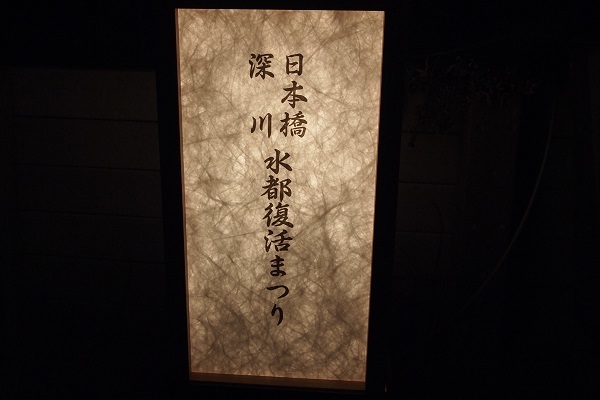 日本橋
深川
水都復活まつり